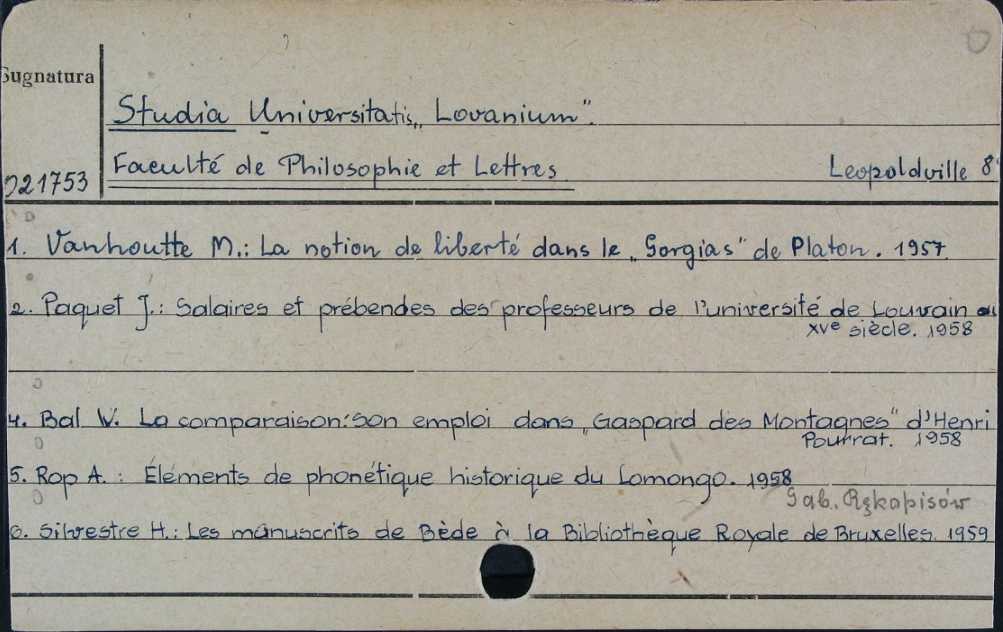 Sygnatura
Studia Universitatis „Lovanium".
Faculté de Philosophie et Lettres Leopoldville 8°
021753
1. Vanhoutte M.: La notion de liberté dans le „Gorgias" de Platon. 1957.
2. Paquet J.: Salaires et prébendes des professeurs de l'université de Louvain au
XVe siècle. 1958
4. Bal W. La comparaison: son emploi dans „Gaspard des Montagnes" d'Henri
Pourrat. 1958
5. Rop A.: Éléments de phonétique historique du Lomongo. 1958
Gab. Rękopisów
6. Silvestre H.: Les manuscrits de Bède à la Bibliothèque Royale de Bruxelles. 1959